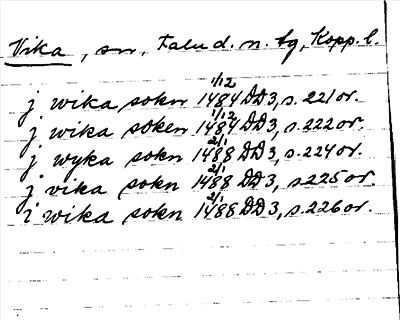 Vika, sn, Falu d. n. tg, Kopp. l.
j wika sokn 1/12 1484 DD3, s. 221 or.
j wika soken 1/12 1484 DD3, s. 222 or.
j wyka sokn 2/1 1488 DD3, s. 224 or.
j vika sokn 2/1 1488 DD3, s 225 or.
i wika sokn 2/1 1488 DD3, s. 226 or.